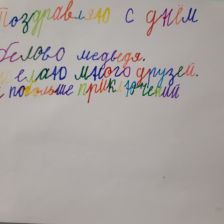 Поздравляю с днём
белово медведя.
Желаю много друзей.
и побольше приключений